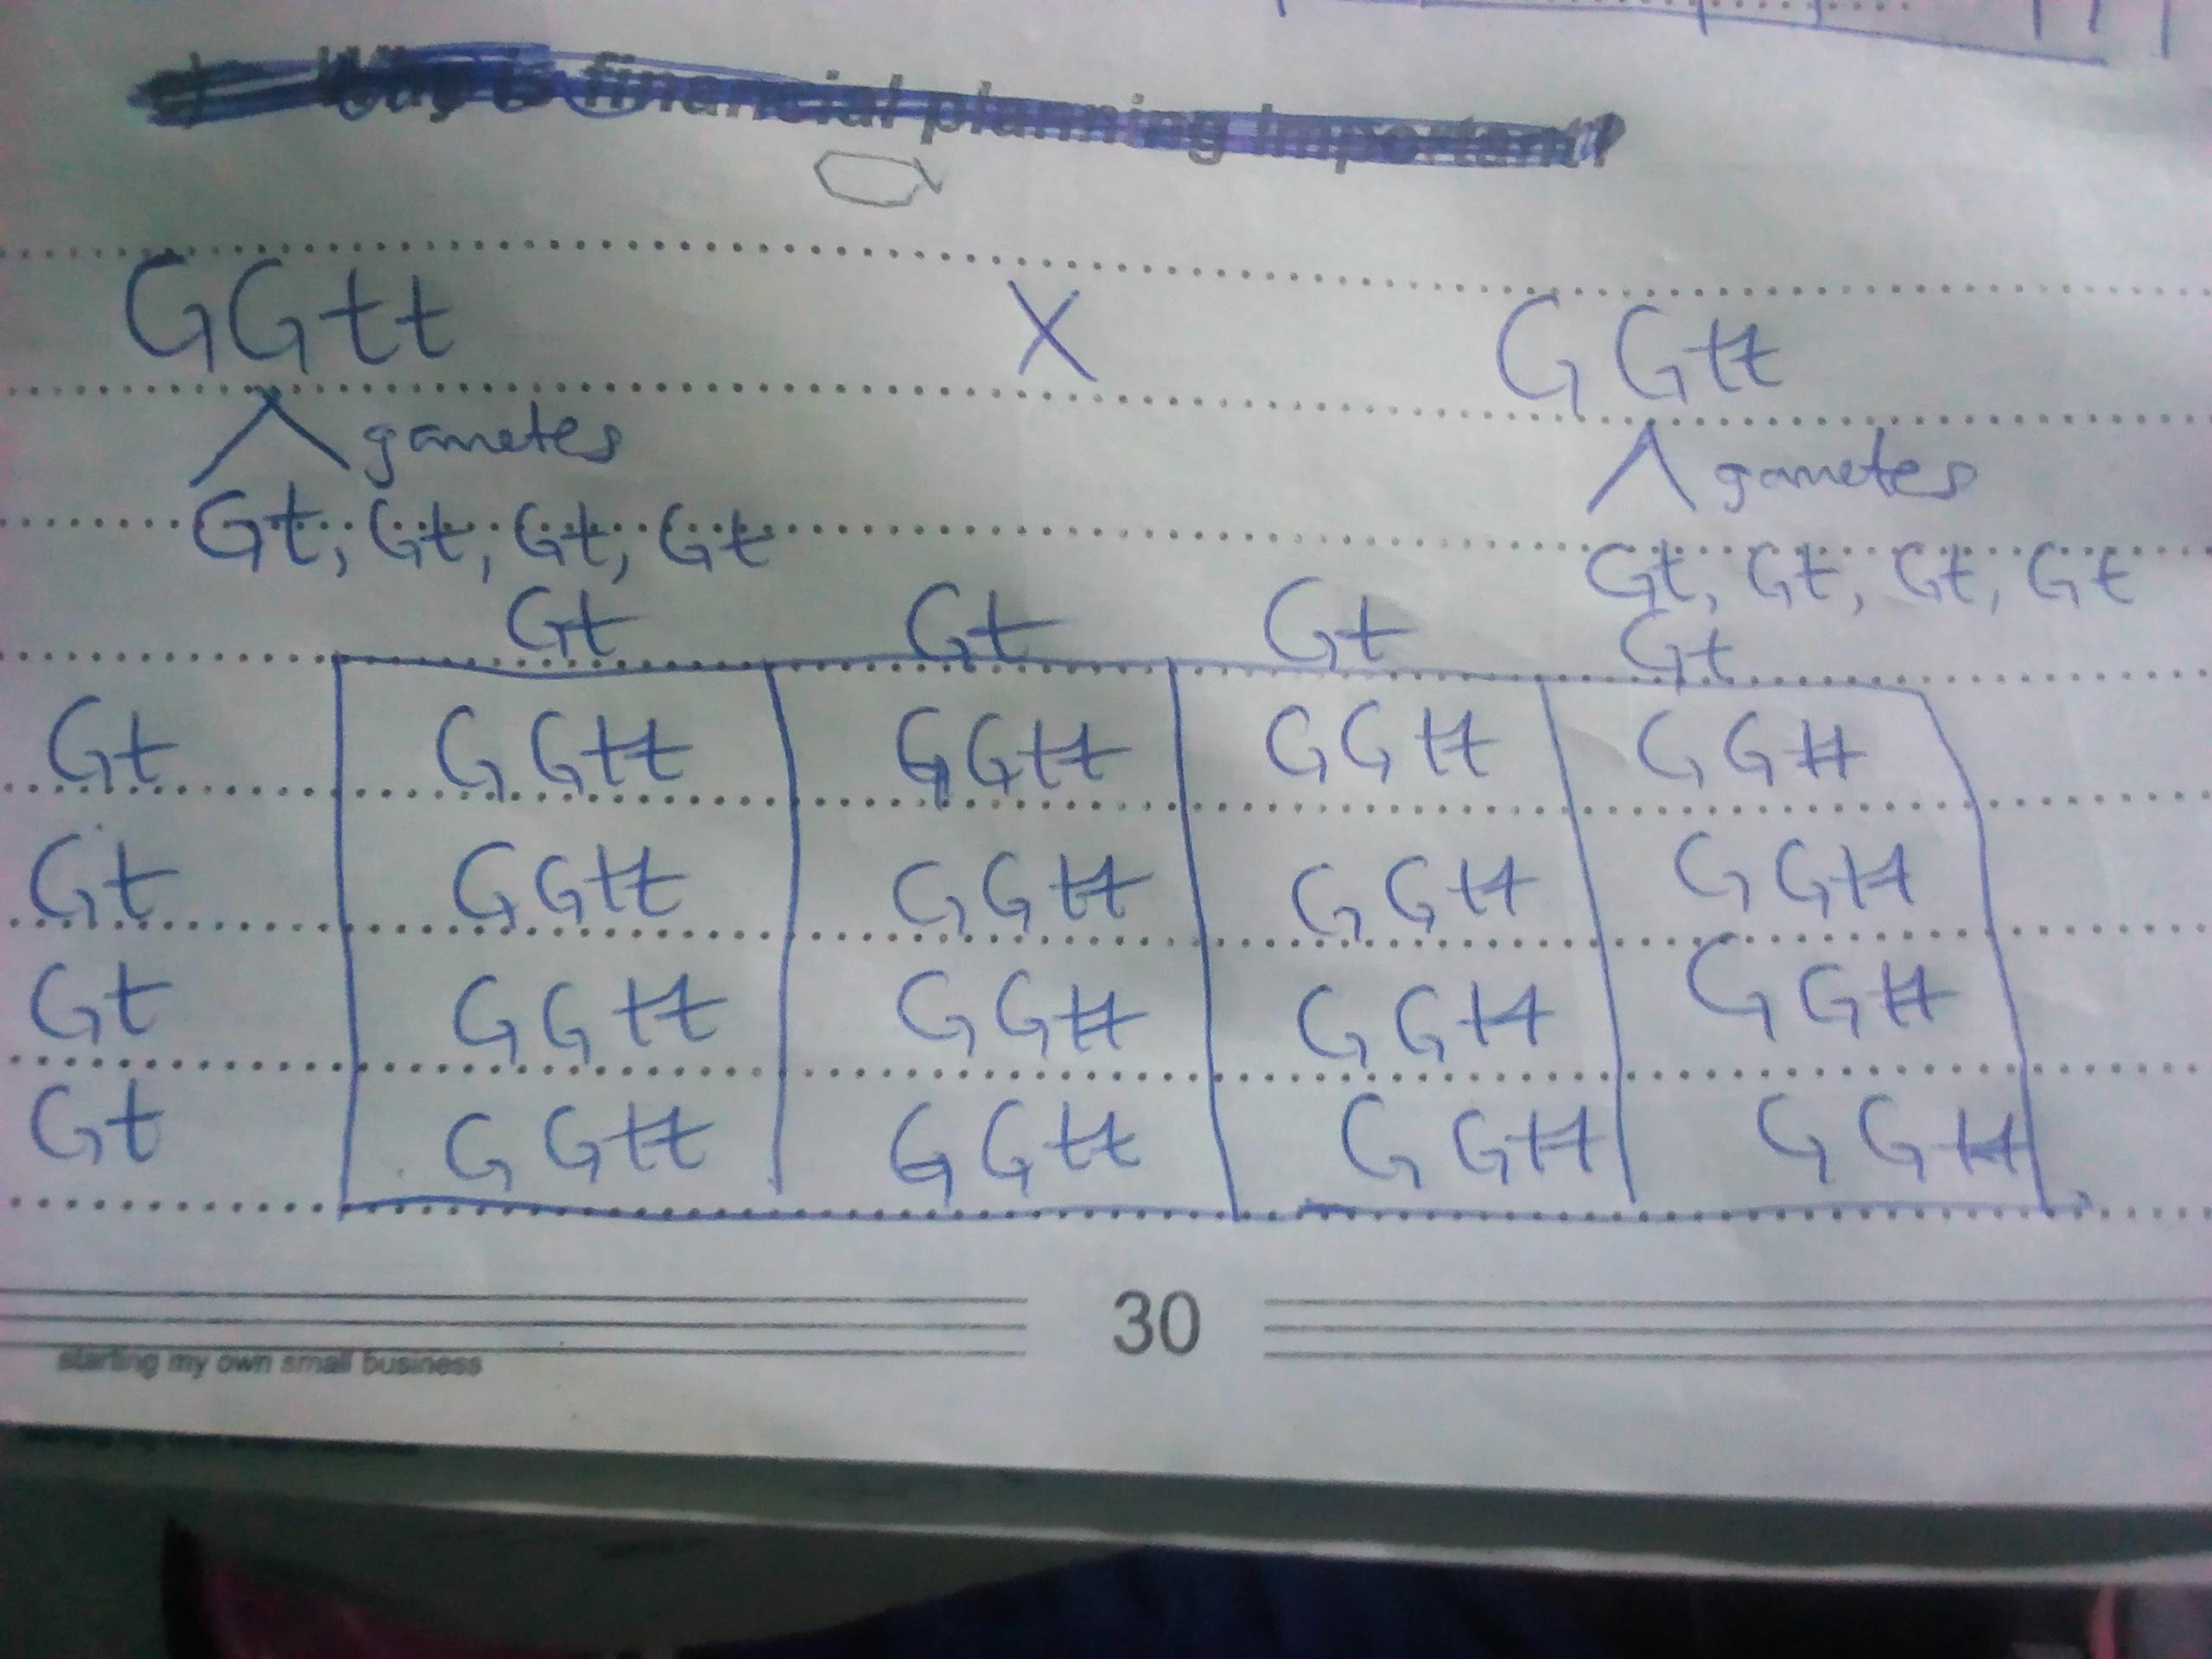 c) Why is financial planning important?
GGtt X GGtt
gametes gametes
Gt, Gt, Gt, Gt Gt, Gt, Gt, Gt
Gt Gt Gt Gt
Gt GGtt GGtt GGtt GGtt
Gt GGtt GGtt GGtt GGtt
Gt GGtt GGtt GGtt GGtt
Gt GGtt GGtt GGtt GGtt
30
starting my own small business